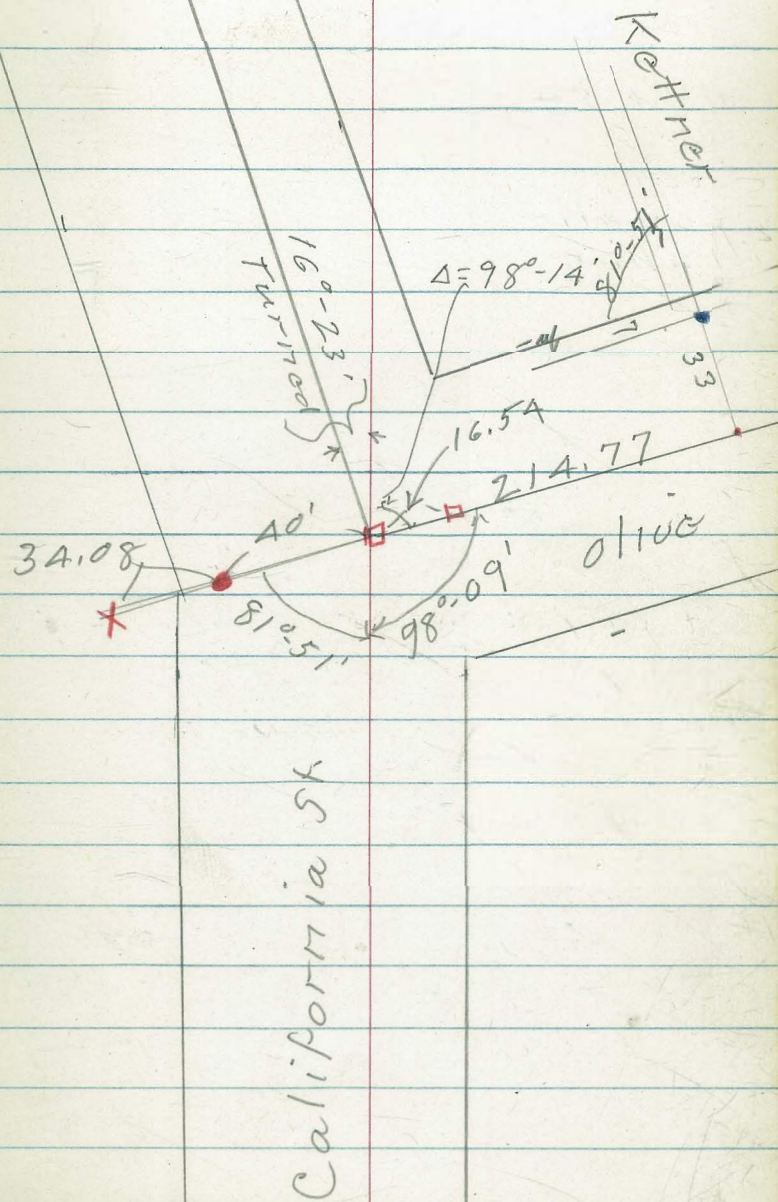 Kettner
81°-51'
Δ=98°-14'
16°-23'
Turned
7
33
16.54
214.77
40'
34.08
Olive
81°-51'
98°-09'
California St